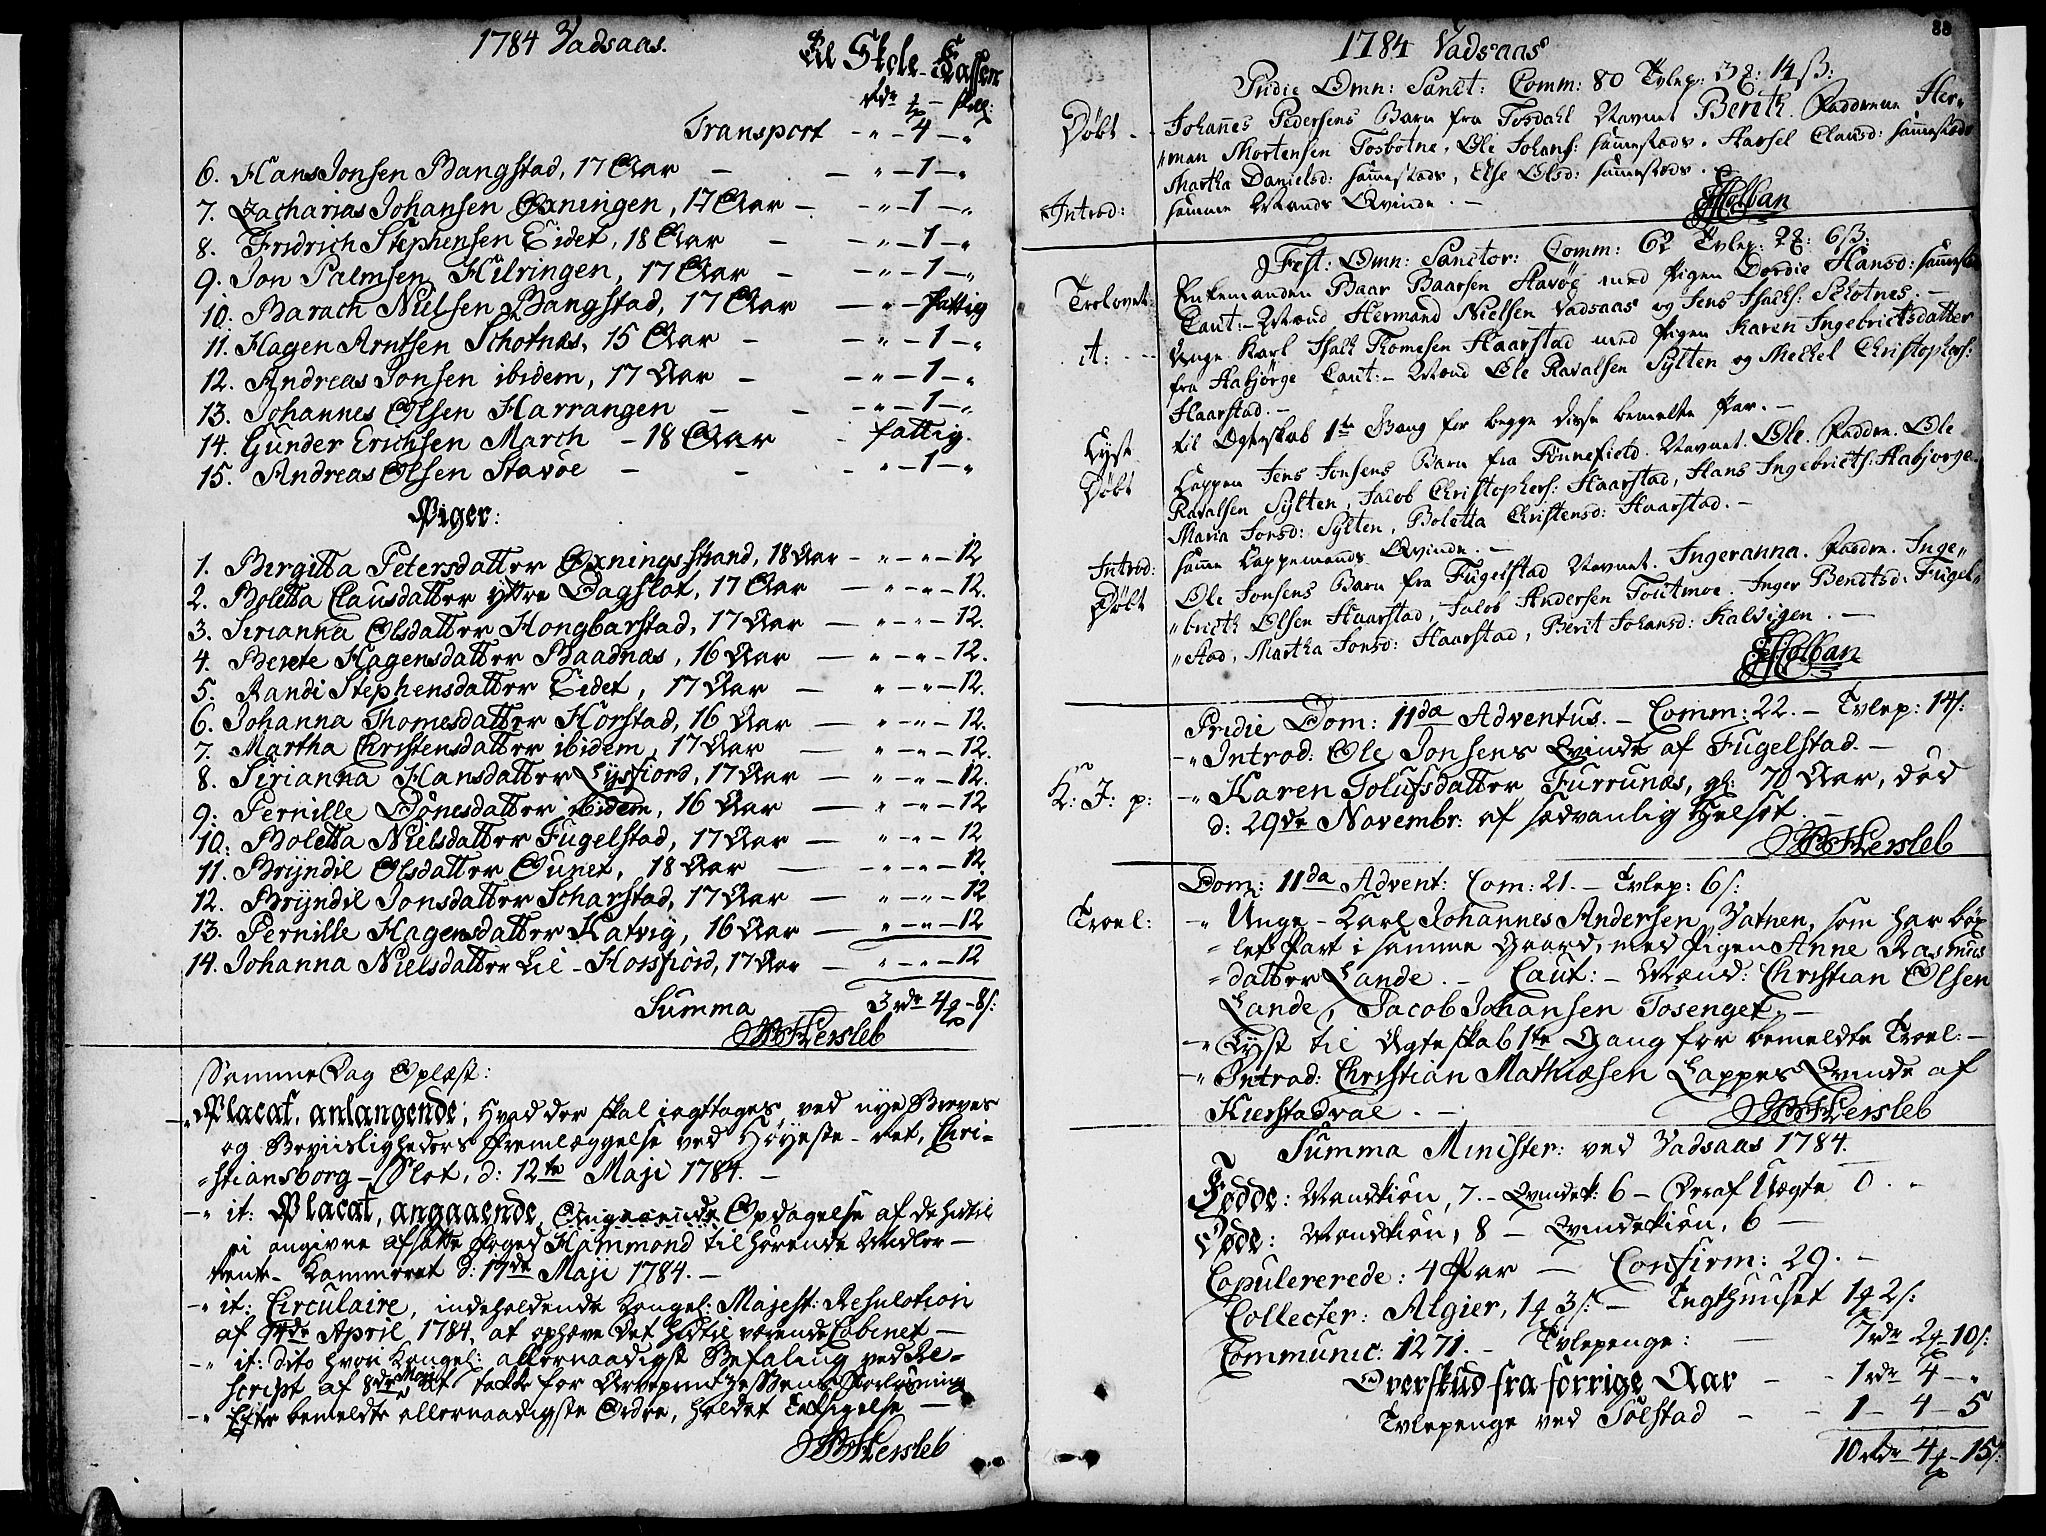 1784 Vadsaas.
Til Skole-Cassen
rdr – skill:
Transport – „ – 4 – „
6. Hans Jonsen Bangstad, 17 Aar – – „ – 1 – „
7. Zacharias Johansen Oxningen, 17 Aar – – „ – 1 – „
8. Fridrich Stephensen Eidet, 18 Aar – – „ – 1 – „
9. Jon Palmsen Hilringen, 17 Aar – – „ – 1 – „
10. Barach Nielsen Bangstad, 17 Aar – „ – fattig
11. Hagen Arntsen Schotnæs, 15 Aar – – „ – 1 – „
12. Andreas Jonsen ibidem, 17 Aar – – „ – 1 – „
13. Johannes Olsen Harrangen – – – „ – 1 – „
14. Gunder Erichsen March – 18 Aar – fattig.
15. Andreas Olsen Stavöe – – – „ – 1 – „
Piger:
1. Birgitta Petersdatter Oxningsstrand, 18 Aar – „ – „ – 12
2. Boletta Clausdatter yttre Dagslot, 17 Aar – „ – „ – 12.
3. Sirianna Olsdatter Hongbarstad, 17 Aar – „ – „ – 12.
4. Berete Hagensdatter Baadnæs, 16 Aar – „ – „ – 12.
5. Randi Stephensdatter Eidet, 17 Aar – „ – „ – 12.
6. Johanna Thomesdatter Horstad, 16 Aar – „ – „ – 12.
7. Martha Christensdatter ibidem, 17 Aar – „ – „ – 12.
8. Sirianna Hansdatter Lysfiord, 17 Aar – „ – „ – 12.
9. Pernille Dönesdatter ibidem, 16 Aar – „ – „ – 12
10. Boletta Nielsdatter Fugelstad, 17 Aar – „ – „ – 12
11. Bryndil Olsdatter Ounet, 18 Aar – „ – „ – 12.
12. Bryndil Jonsdatter Scharstad, 17 Aar – „ – „ – 12
13. Pernille Hagensdatter Hatvig, 16 Aar – „ – „ – 12
14. Johanna Nielsdatter Lil-Horsfiord, 17 Aar – „ – „ – 12
Summa 3 rdr 4 – 8 s:
Hersleb
Samme Dag Oplæst:
– „ Placat, anlangende, hvad der skal iagttages ved nye Breves
og Beviisligheders Fremlæggelse ved Höyeste-ret, Chri-
„stiansborg-Slot, d: 12te Maji 1784. –
– „ it: Placat, angaaende, Angaaende Opdagelse af de hidtil
ei angivne afsatte Foged Hammond tilhörende Midler –
Rente-Kammeret d: 17de Maji 1784. –
– „ it: Circulaire, indeholdende Kongel: Majest: Resulotion
af 14de April 1784, at ophæve det hidtil værende Cabinet –
– „ it: dito hvori Kongel: allernaadigst Befaling ved Re-
script af 8de Maji at takke for Arveprintzessens Forlösning
– „ Efter bemeldte allernaadigste Ordre, holdet Taksigelse –
Hersleb
88
1784 Vadsaas
Pridie Omn: Sanct: Comm: 80 Tvlep: 3: 14 ß:
Döbt – Johannes Pedersens Barn fra Tosdahl Navnet Berith. Fadderne Her„
„man Mortensen Tosbotne, Ole Johans: sammesteds. Marsel Clausd: sammesteds
Martha Danielsd: sammesteds, Else Olsd: sammesteds.
Introd: samme Mands Qvinde. –
Holban
Fest: Omn: Sanctor: Comm: 62 Tvlep: 2: 6 ß:
Trolovet: Enkemanden Baar Baarsen Stavöe med Pigen Dordie Hansd: sammested
Caut: – Mænd Hermand Nielsen Vadsaas og Jens Isachs: Schotnes. –
it: – Unge Karl Isach Thomesen Haarstad med Pigen Karen Ingebrictsdatter
fra Aabjörge Caut: – Mænd Ole Ravalsen Sylten og Mechel Christophers:
Haarstad. –
Lyst til Egteskab 1te Gang for begge disse bemelte Par. –
Döbt Lappen Jens Jonsens Barn fra Tönnefield. Navnet. Ole. Faddre. Ole
Ravalsen Sylten, Jacob Christophers: Haarstad, Hans Ingebricts: Aabjorge
Maria Jonsd: Sylten, Boletta Christensd: Haarstad. –
Introd: samme Lappemands Qvinde. –
Döbt Ole Jonsens Barn fra Fugelstad Navnet. Ingeranna. Faddre. Inge„
„bricth Olsen Haarstad, Jacob Andersen Toutmoe. Inger Bendtsd: Fugel„
„stad, Martha Jonsd: Haarstad, Berit Johansd: Kalvigen. –
Holban
Pridie Dom: 11da Adventus. – Comm: 22. – Tvlep: 14 s:
– „ Introd: Ole Jonsens Qvinde af Fugelstad. –
K: J: p: – „ Karen Tolufsdatter Furrunæs, gl: 70 Aar, död
d: 29de Novembr: af sædvanlig Helsot. –
Hersleb
Dom: 11da Advent: Com: 21. – Tvlep: 6 s:
Troel: – „ Unge-Karl Johannes Andersen, Vatnen, som har böx-
„let Part i samme Gaard, med Pigen Anne Rasmus
„datter Lande. – Caut: – Mænd: Christian Olsen
Lande, Jacob Johansen Tosenget. –
– „ Lyst til Egteskab 1te Gang for bemeldte Troel: –
– „ Introd: Christian Mathiæsen Lappes Qvinde af
Kierstadval. –
Hersleb
Summa Minister: ved Vadsaas 1784.
Födde: Mandkiön, 7. – Qvindek: 6 – Deraf Uægte 0. –
Döde: Mandkiön, 8 – Qvindekiön, 6 –
Copulererede: 4 Par – Confirm: 29. –
Collecter: Algier, 1 3 s: – Tugthuuset 1 2 s:
Communic: 1271. – Tvlepenge: – 7 rdr 2 – 10 s:
Overskud fra forrige Aar – – 1 rdr 4 – „
Tvlepenge ved Sölstad – – 1 – 4 – 5
10 rdr 4 – 15 s: